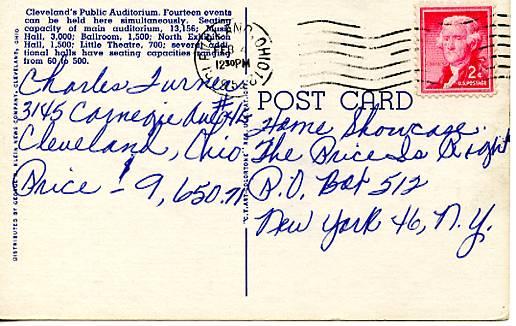 Cleveland's Public Auditorium. Fourteen events
can be held here simultaneously. Seating
capacity of main auditorium, 13,156; Music
Hall, 3,000; Ballroom, 1,500; North Exhibition
Hall, 1,500; Little Theatre, 700; several addi-
tional halls have seating capacities ranging
from 60 to 500.
Charles Turner
3145 Carnegie Ave
Cleveland, Ohio
Price - 9,650.71
DISTRIBUTED BY GEORGE R. KLEIN NEWS COMPANY, CLEVELAND, OHIO
CLEVELAND, OHIO
12:30PM
2¢
U.S. POSTAGE
POST CARD
Home Showcase
The Price Is Right
P.O. Box 512
New York 46, N.Y.